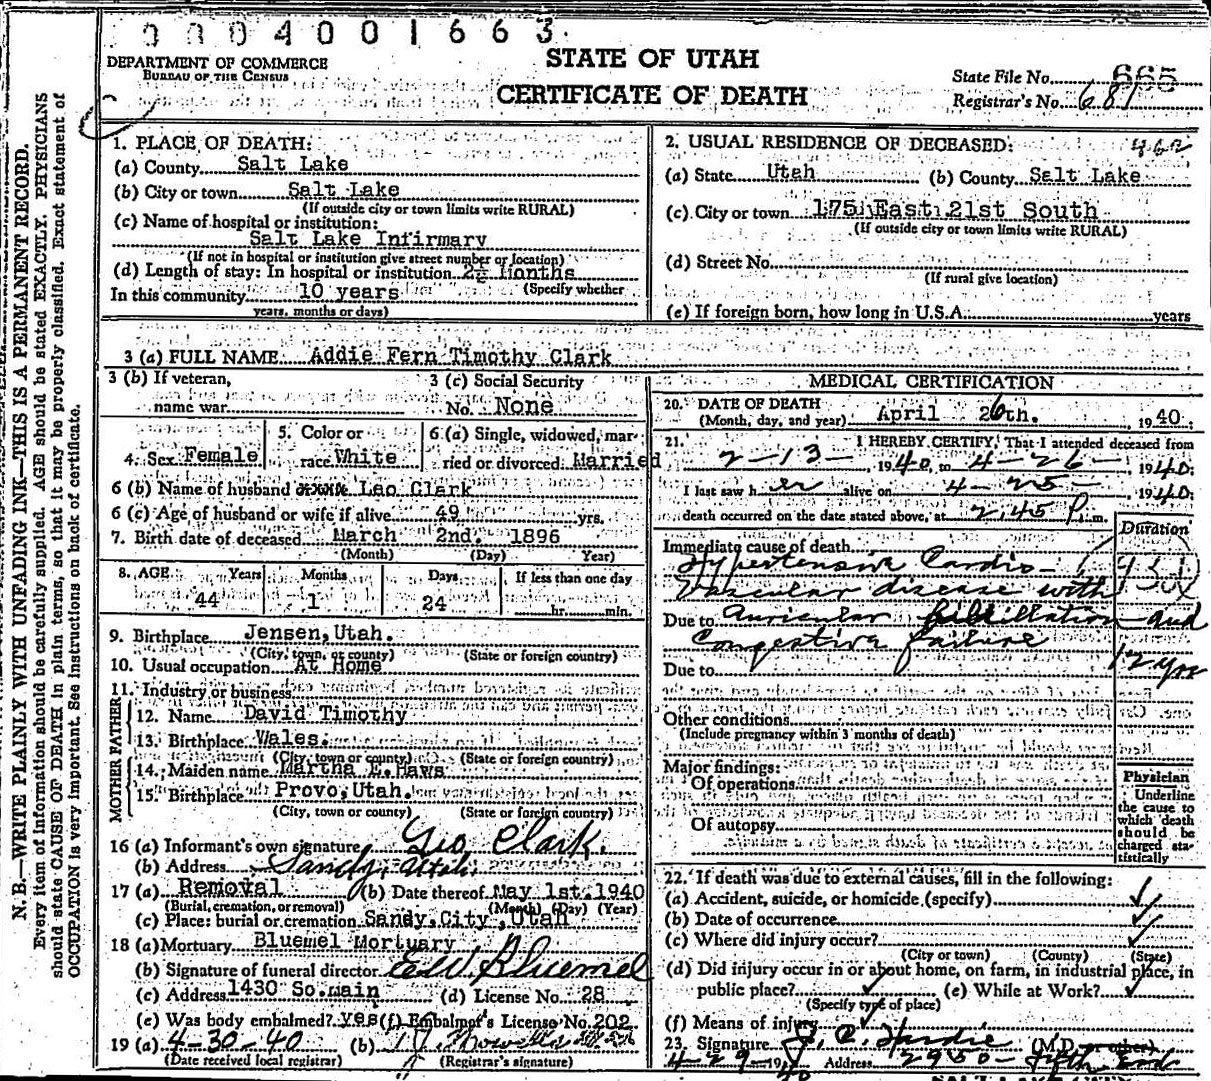 0004001663
DEPARTMENT OF COMMERCE
BUREAU OF THE CENSUS
STATE OF UTAH
CERTIFICATE OF DEATH
State File No. 665
Registrar's No. 681
N. B.—WRITE PLAINLY WITH UNFADING INK—THIS IS A PERMANENT RECORD.
Every item of information should be carefully supplied. AGE should be stated EXACTLY. PHYSICIANS
should state CAUSE OF DEATH in plain terms, so that it may be properly classified. Exact statement of
OCCUPATION is very important. See instructions on back of certificate.
1. PLACE OF DEATH:
(a) County Salt Lake
(b) City or town Salt Lake
(If outside city or town limits write RURAL)
(c) Name of hospital or institution:
Salt Lake Infirmary
(If not in hospital or institution give street number or location)
(d) Length of stay: In hospital or institution 2½ Months
(Specify whether
In this community 10 years
years, months or days)
2. USUAL RESIDENCE OF DECEASED: 462
(a) State Utah (b) County Salt Lake
(c) City or town 175 East 21st South
(If outside city or town limits write RURAL)
(d) Street No.
(If rural give location)
(e) If foreign born, how long in U.S.A. years
3 (a) FULL NAME Addie Fern Timothy Clark
3 (b) If veteran,
name war
3 (c) Social Security
No. None
4. Sex Female
5. Color or
race White
6 (a) Single, widowed, mar-
ried or divorced. Married
6 (b) Name of husband Leo Clark
6 (c) Age of husband or wife if alive 49 yrs.
7. Birth date of deceased March 2nd. 1896
(Month) (Day) Year)
8. AGE Years Months Days If less than one day
44 1 24 hr. min.
9. Birthplace Jensen, Utah.
(City, town, or county) (State or foreign country)
10. Usual occupation At Home
11. Industry or business
FATHER
12. Name David Timothy
13. Birthplace Wales.
(City, town or county) (State or foreign country)
MOTHER
14. Maiden name Martha E. Haws
15. Birthplace Provo, Utah.
(City, town or county) (State or foreign country)
16 (a) Informant's own signature Geo Clark.
(b) Address Sandy, Utah
17 (a) Removal (b) Date thereof May 1st. 1940
(Burial, cremation, or removal) (Month) (Day) (Year)
(c) Place: burial or cremation Sandy City, Utah
18 (a) Mortuary Bluemel Mortuary
(b) Signature of funeral director E W Bluemel
(c) Address 1430 So. main (d) License No. 28
(e) Was body embalmed? yes (f) Embalmer's License No. 202
19 (a) 4-30-40 (b)
(Date received local registrar) (Registrar's signature)
MEDICAL CERTIFICATION
20. DATE OF DEATH
(Month, day, and year) April 26th. 1940.
21. I HEREBY CERTIFY, That I attended deceased from
2-13- 1940, to 4-26- 1940;
I last saw her alive on 4-25- 1940;
death occurred on the date stated above, at 2:45 P. m.
Duration
Immediate cause of death
Hypertensive Cardio-
Vascular disease with
Due to Auricular fibrillation and
Congestive failure
12 yrs
Due to
Other conditions
(Include pregnancy within 3 months of death)
Major findings:
Of operations
Of autopsy
Physician
Underline
the cause to
which death
should be
charged sta-
tistically
22. If death was due to external causes, fill in the following:
(a) Accident, suicide, or homicide (specify)
(b) Date of occurrence
(c) Where did injury occur?
(City or town) (County) (State)
(d) Did injury occur in or about home, on farm, in industrial place, in
public place? (e) While at Work?
(Specify type of place)
(f) Means of injury
23. Signature J. C. Hardie (M.D. or other)
4-29-1940 Address 2950- Fifth East